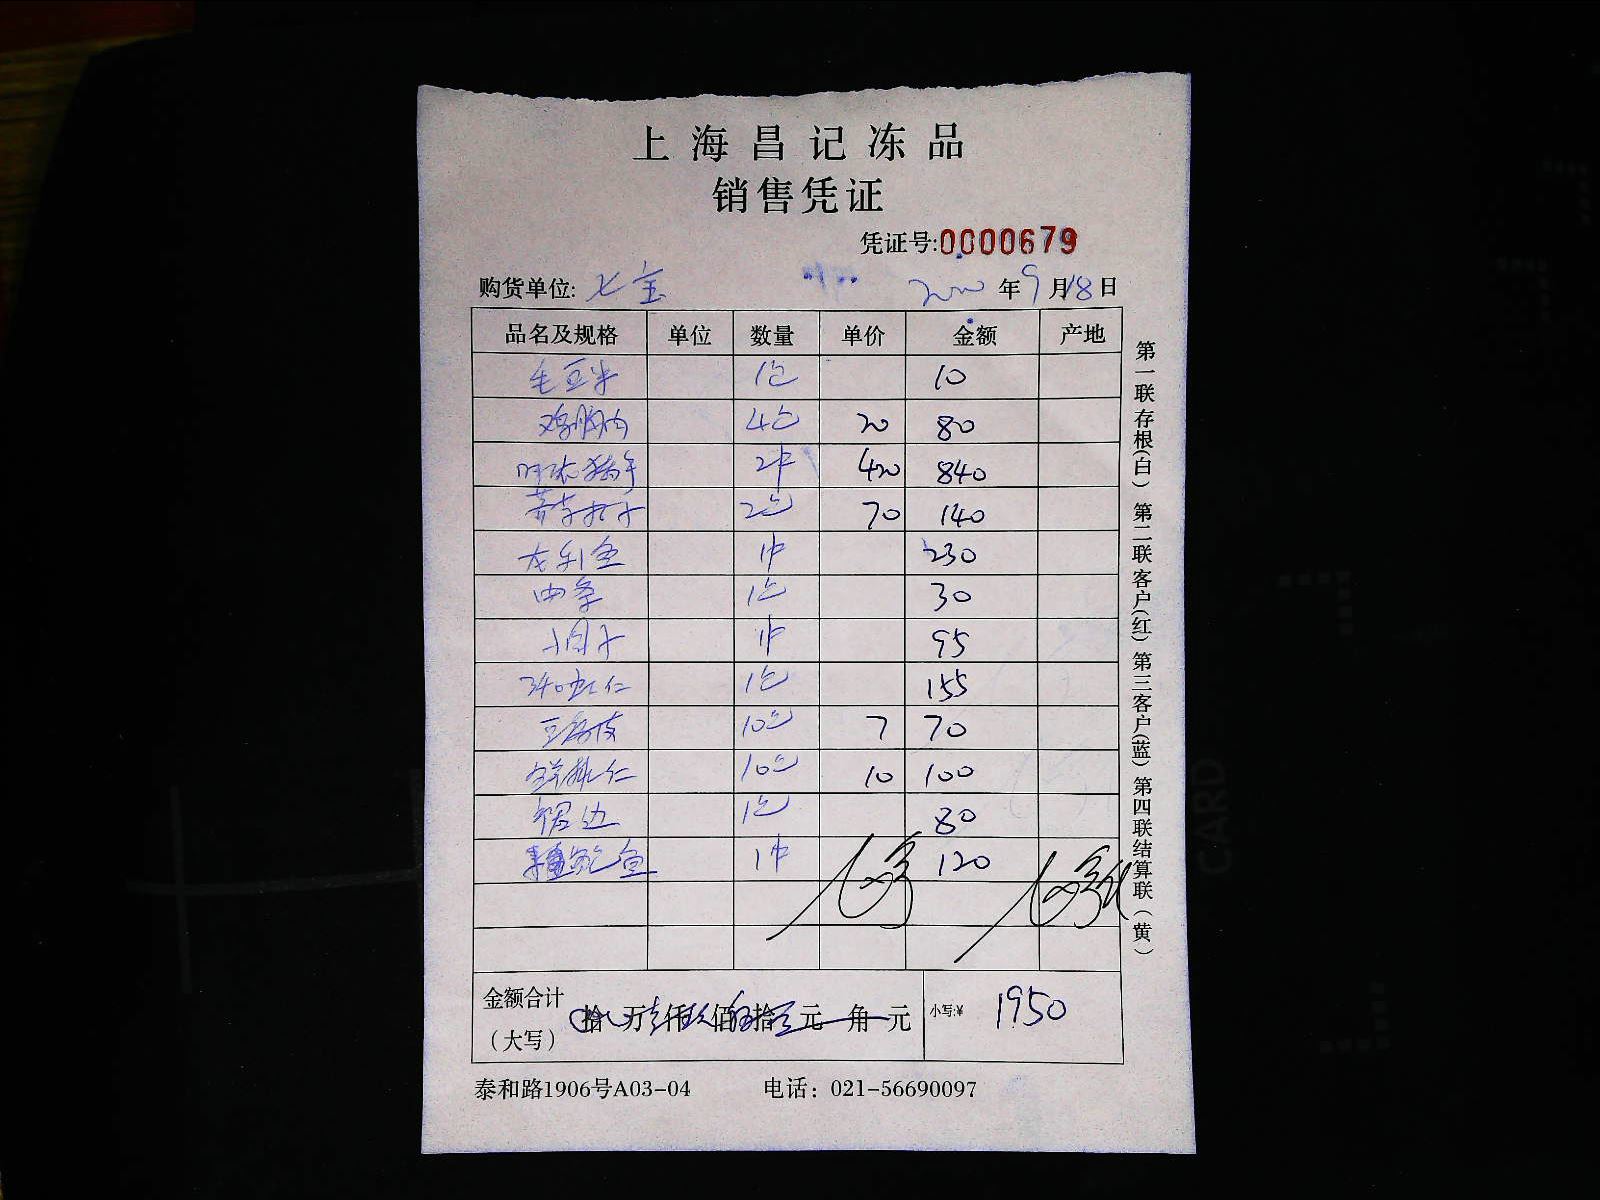 上海昌记冻品
销售凭证
凭证号:0000679
购货单位: 七宝 2020年9月18日
品名及规格 单位 数量 单价 金额 产地
毛豆米 1包 10
鸡胸肉 4包 20 80
2件 420 840
2包 70 140
龙利鱼 1件 230
1包 30
1件 95
340虾仁 1包 155
10包 7 70
10包 10 100
裙边 1包 80
鱼 1件 120
金额合计
(大写) 拾 万壹仟玖佰伍拾 元 角 元 小写:¥ 1950
泰和路1906号A03-04 电话: 021-56690097
第一联存根(白) 第二联客户(红) 第三客户(蓝) 第四联结算联(黄)